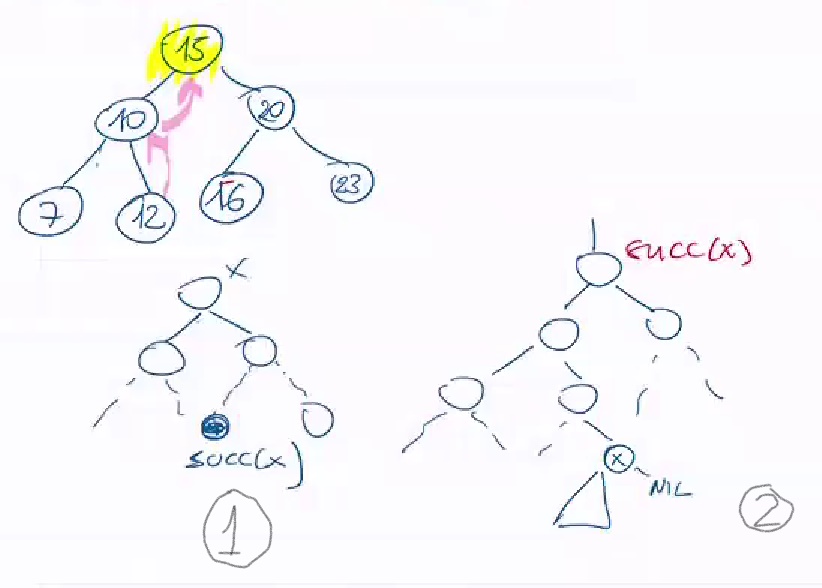 15
10
20
7
12
16
23
X
succ(x)
succ(x)
X
NIL
1
2